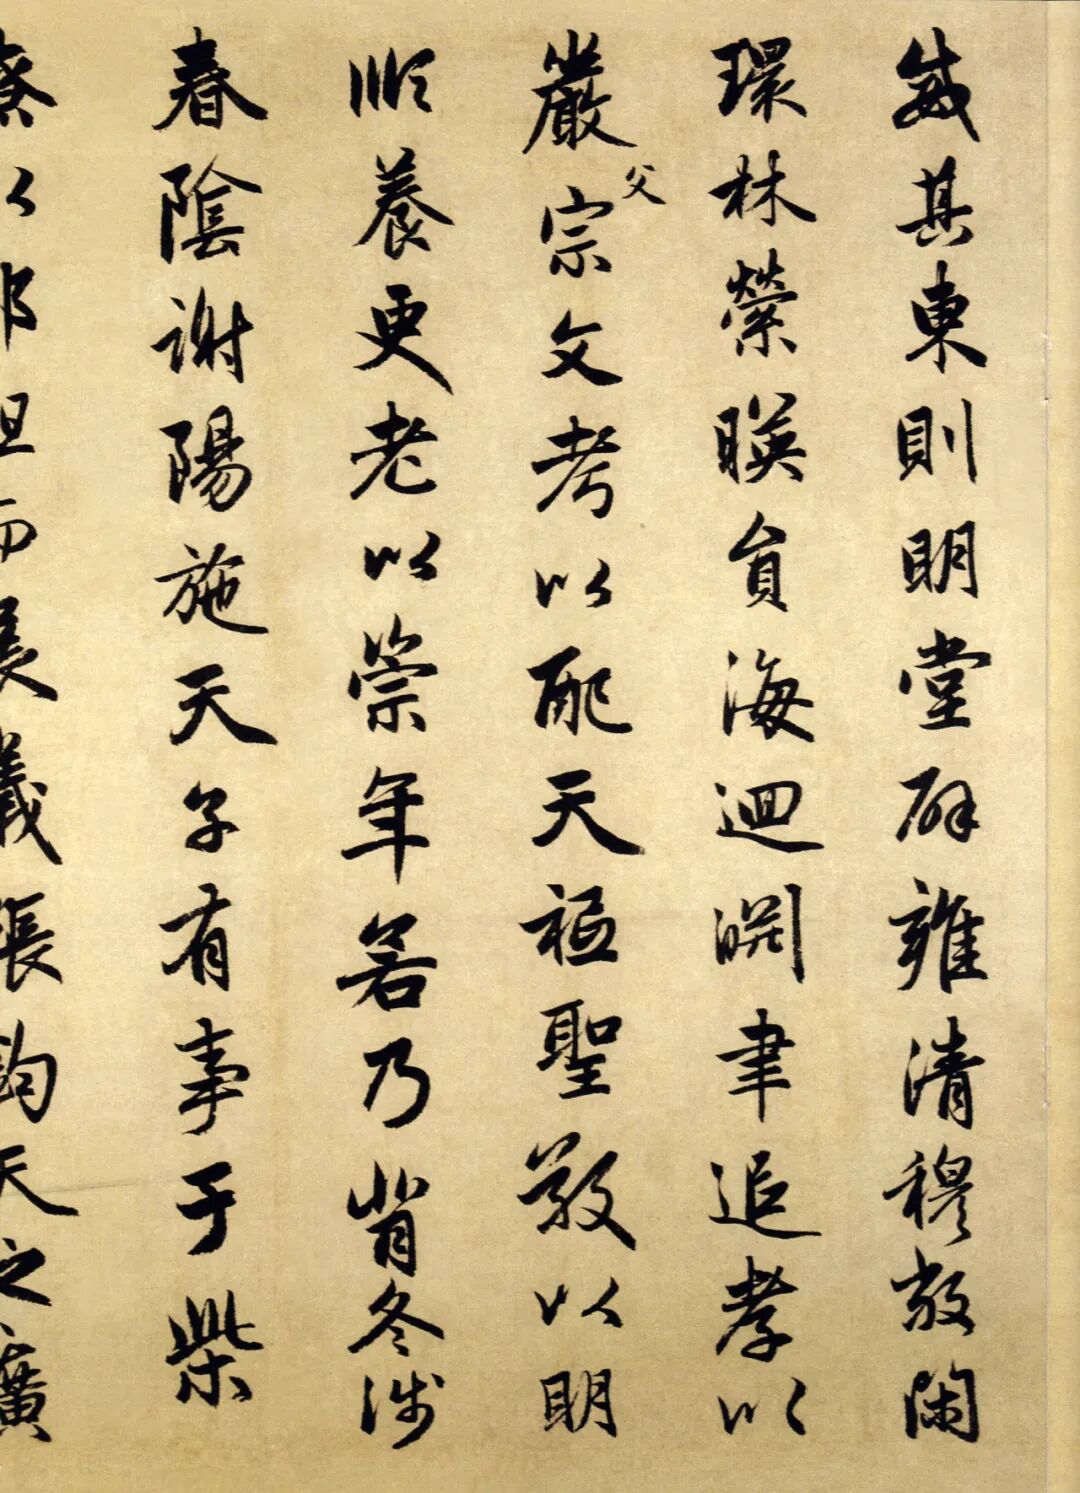 威其東則明堂辟雍清穆敞閑
環林縈暎員海迴淵聿追孝以
嚴父宗文考以配天祗聖敬以明
順養更老以崇年若乃背冬涉
春陰謝陽施天子有事于柴
以郊祖而展義張鈞天之廣